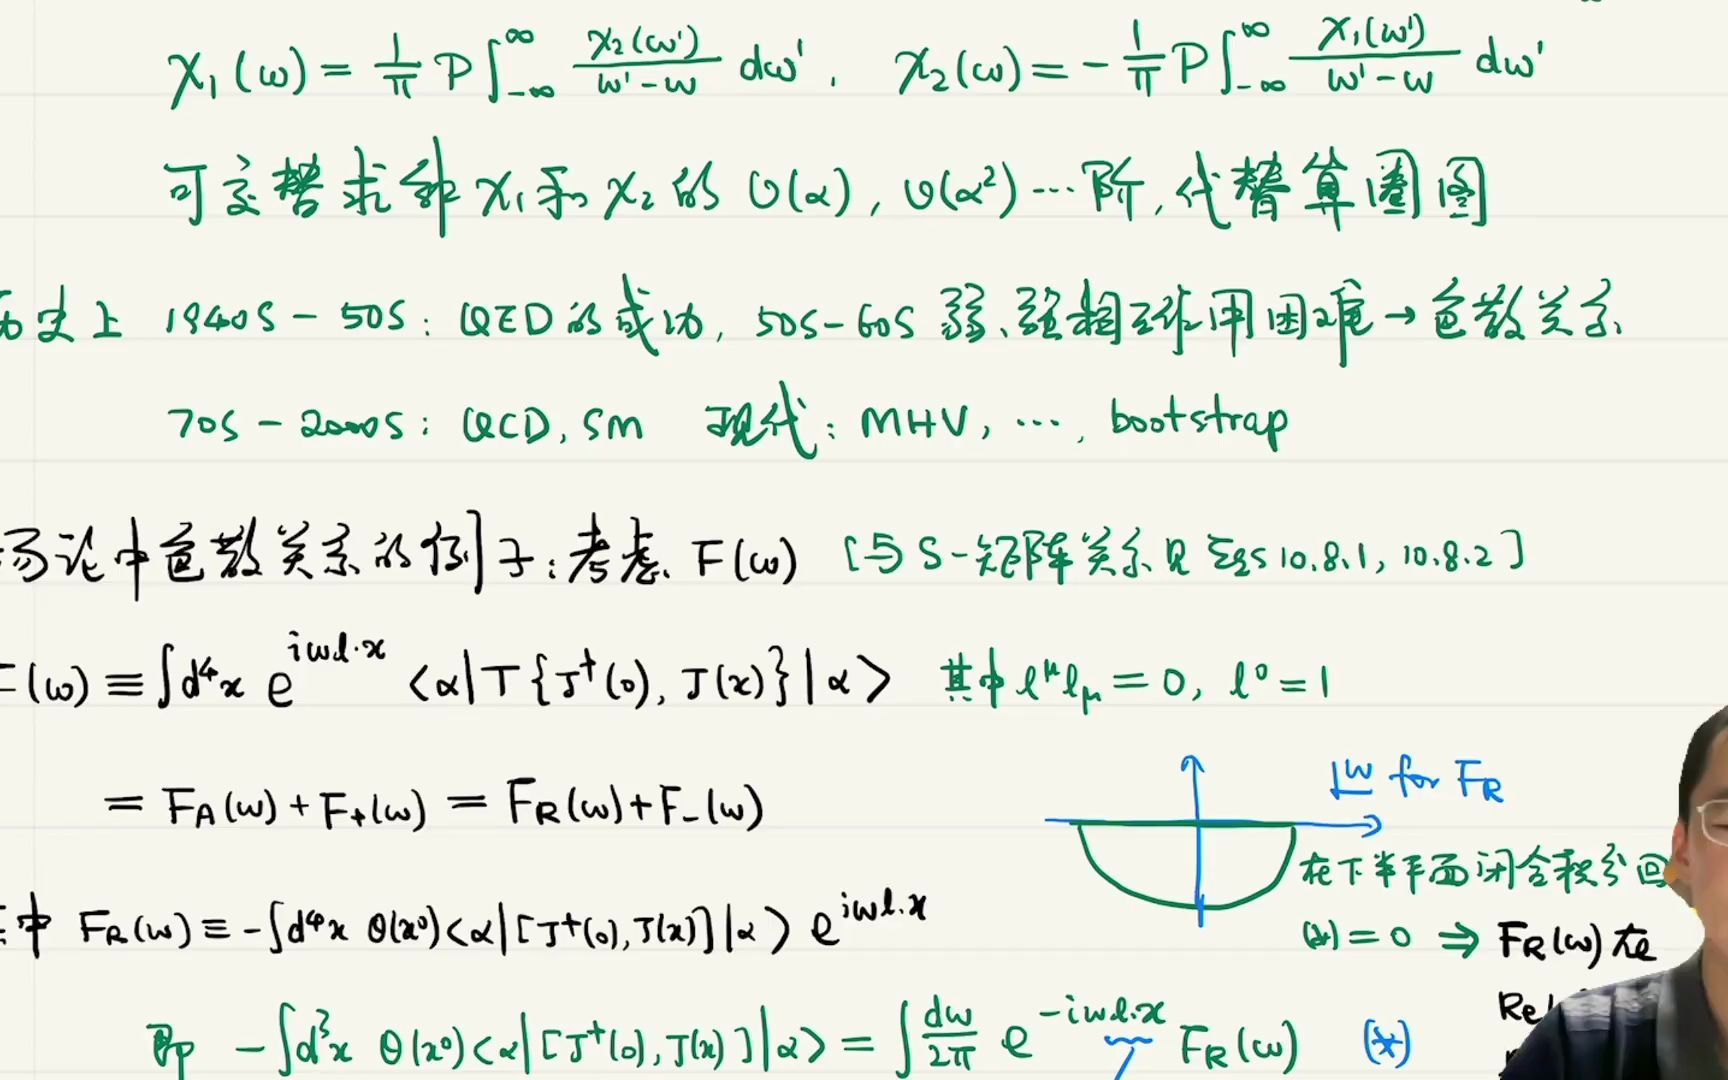 χ₁(ω) = 1/π P∫_{-∞}^{∞} χ₂(ω')/(ω'-ω) dω' , χ₂(ω) = - 1/π P∫_{-∞}^{∞} χ₁(ω')/(ω'-ω) dω'
可交替求解 χ₁和 χ₂ 的 O(α), O(α²) ⋯ 阶, 代替算圈图
历史上 1940s - 50s: QED 的成功, 50s-60s 弱、强相互作用困难 → 色散关系
70s - 2000s: QCD, SM 现代: MHV, ⋯, bootstrap
场论中色散关系的例子: 考虑 F(ω) [与 S-矩阵关系见 §§ 10.8.1, 10.8.2]
F(ω) ≡ ∫d⁴x e^{iωl·x} <α|T{J†(0), J(x)}|α> 其中 l^μ l_μ = 0, l⁰ = 1
= F_A(ω) + F_+(ω) = F_R(ω) + F_-(ω)
ω for F_R
在下半平面闭合积分回
其中 F_R(ω) ≡ -∫d⁴x θ(x⁰)<α|[J†(0), J(x)]|α> e^{iωl·x}
(*) = 0 ⇒ F_R(ω) 在
即 -∫d³x θ(x⁰)<α|[J†(0), J(x)]|α> = ∫ dω/2π e^{-iωl·x} F_R(ω) (*)